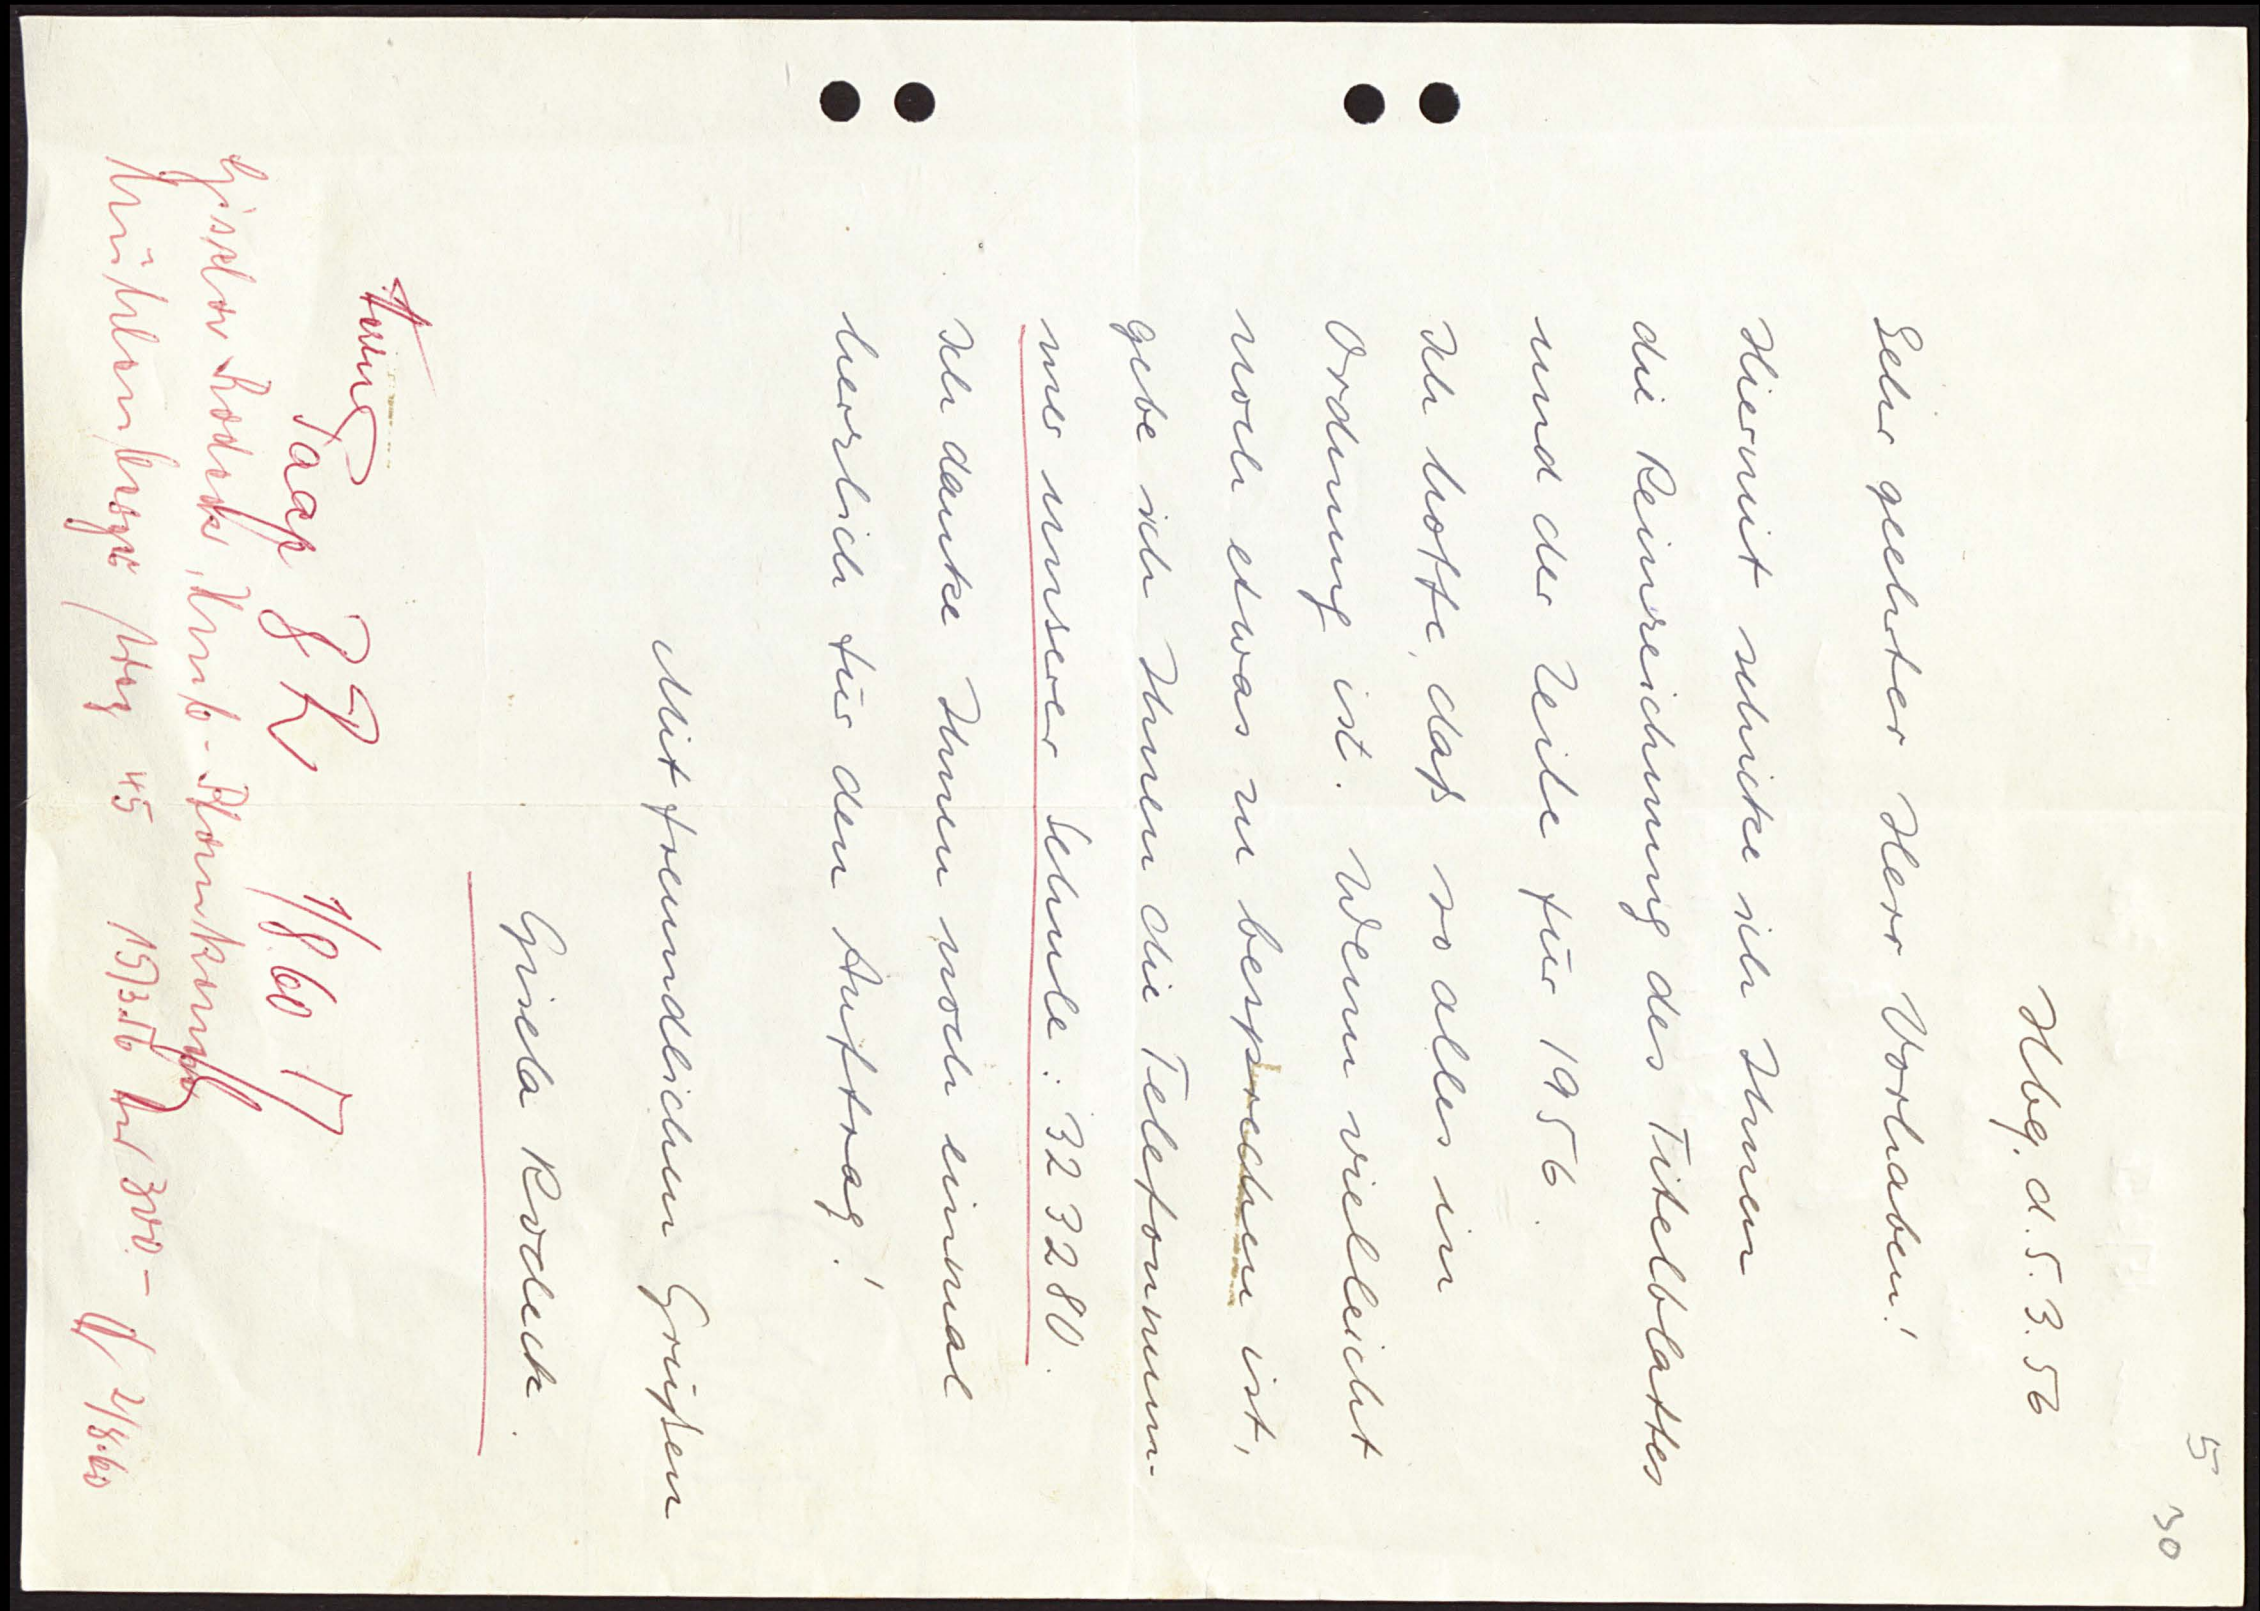 5
30
Hbg, d. 5. 3. 56
Sehr geehrter Herr Vorhaben!
Hiermit schicke ich Ihnen
die Reinzeichnung des Titelblattes
und der Zeile für 1956.
Ich hoffe, daß so alles in
Ordnung ist. Wenn vielleicht
noch etwas zu besprechen ist,
gebe ich Ihnen die Telefonnum-
mer unserer Schule: 32 32 80.
Ich danke Ihnen noch einmal
herzlich für den Auftrag!
Mit freundlichen Grüßen
Gisela Rodeck.
1/8.60
Gisela Rodeck, Hmb-
45 15/3.56 300.- 2/8.60